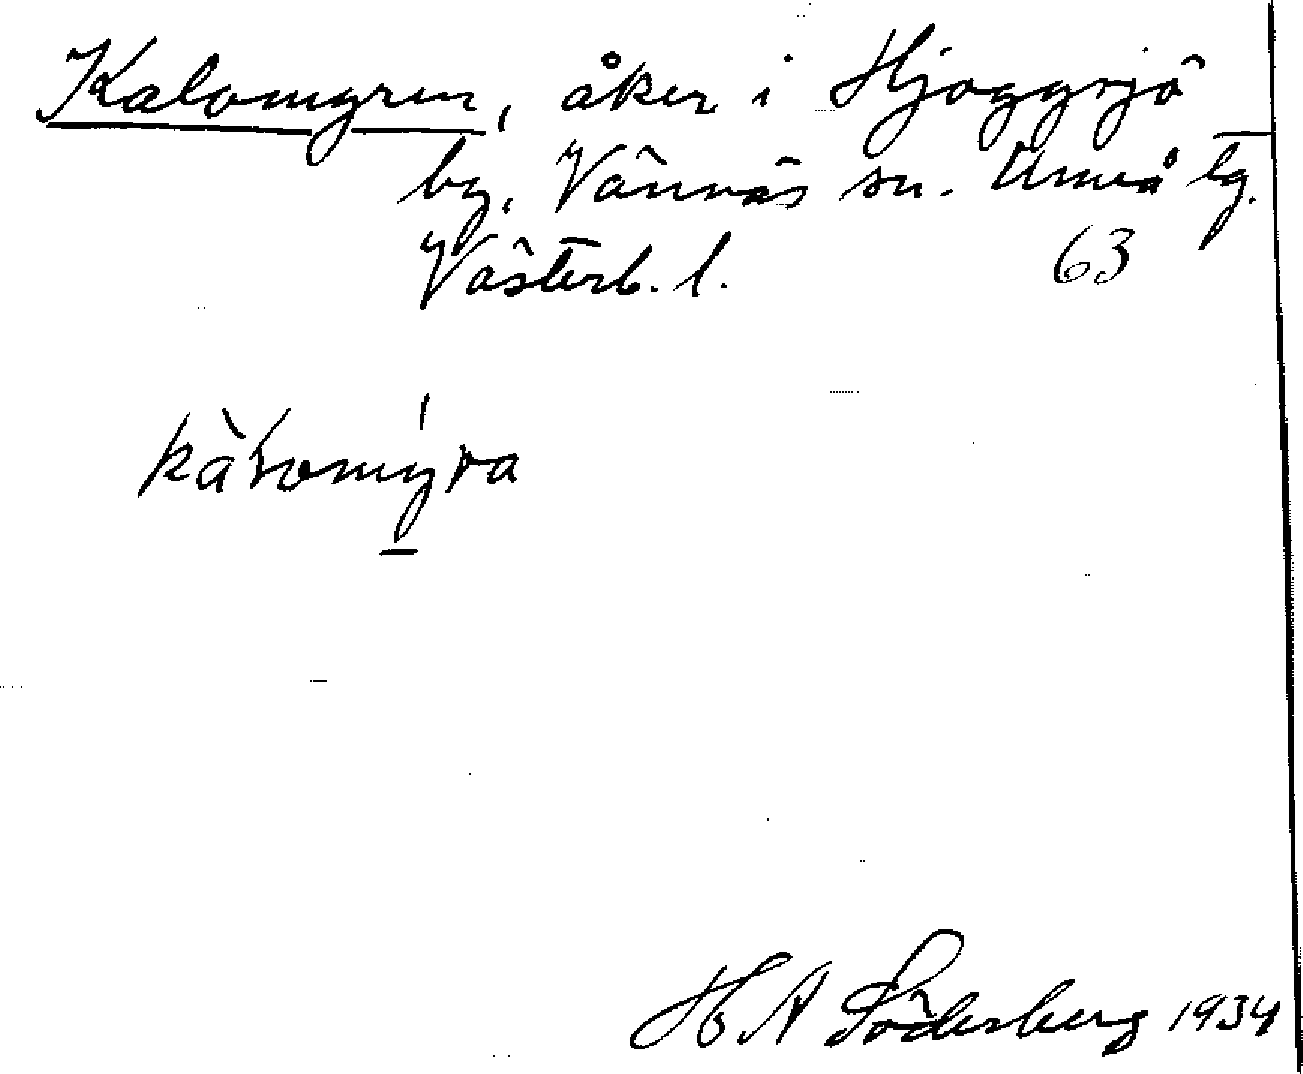 Kalomyren, åker i Hjoggsjö
by, Vännäs sn. Umeå tg.
Västerb. l. 63
kàLomýra
H A Söderberg 1934